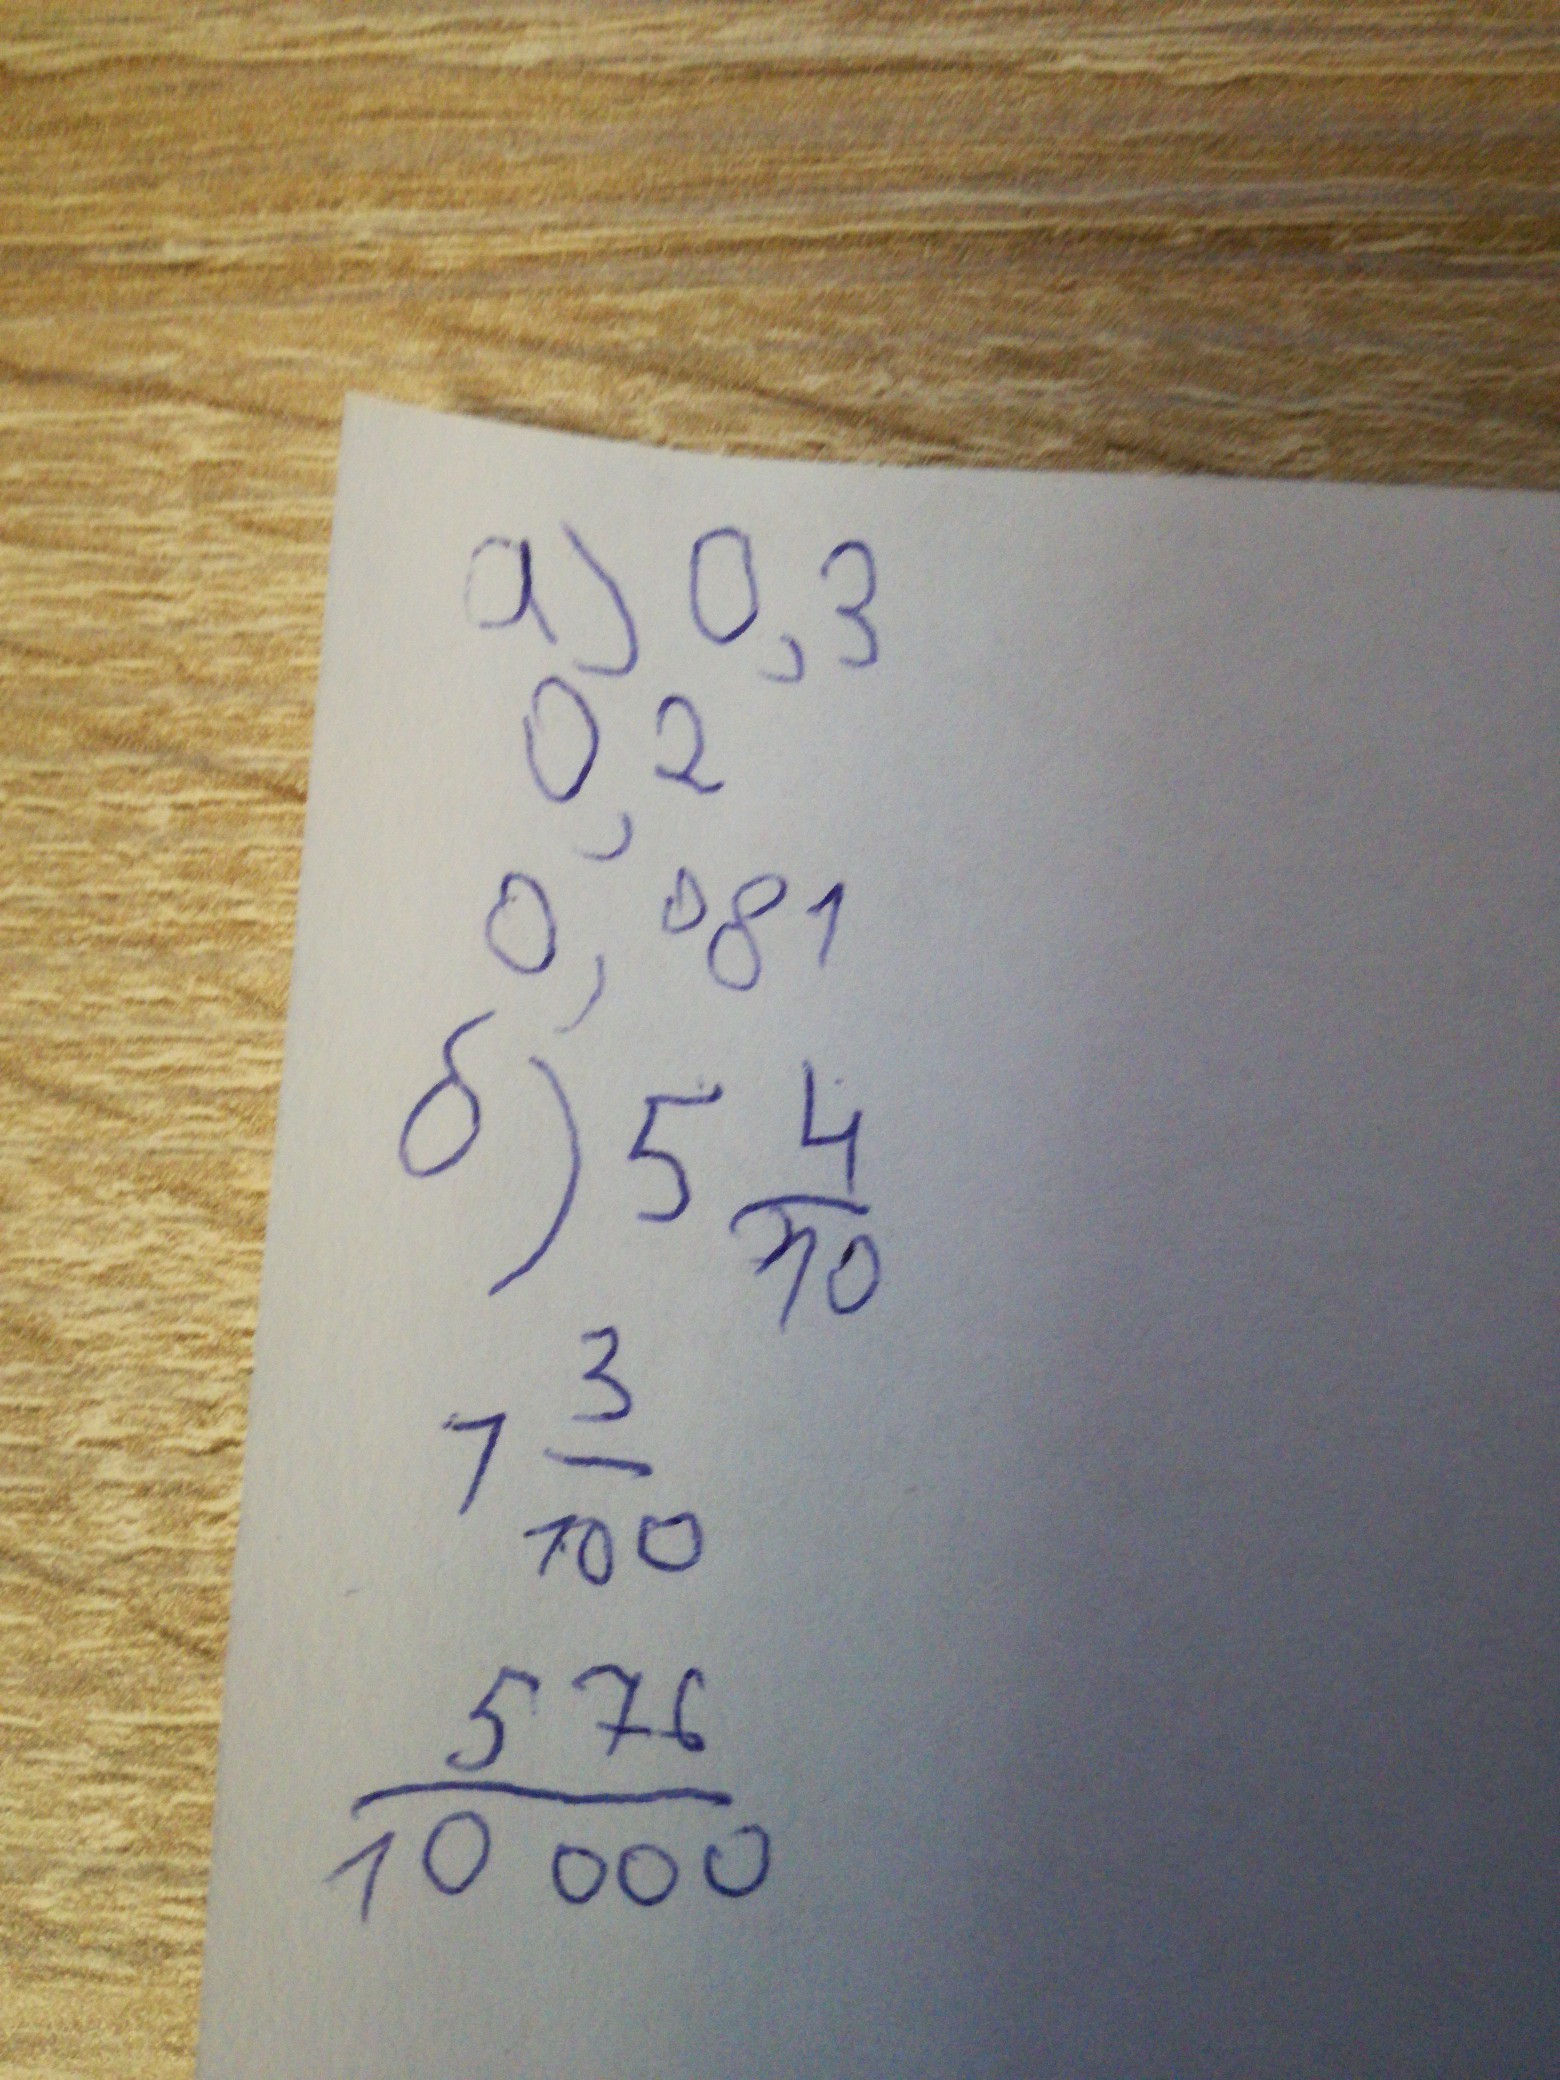 а) 0,3
0,2
0,081
б) 5 4/10
1 3/100
576/10 000